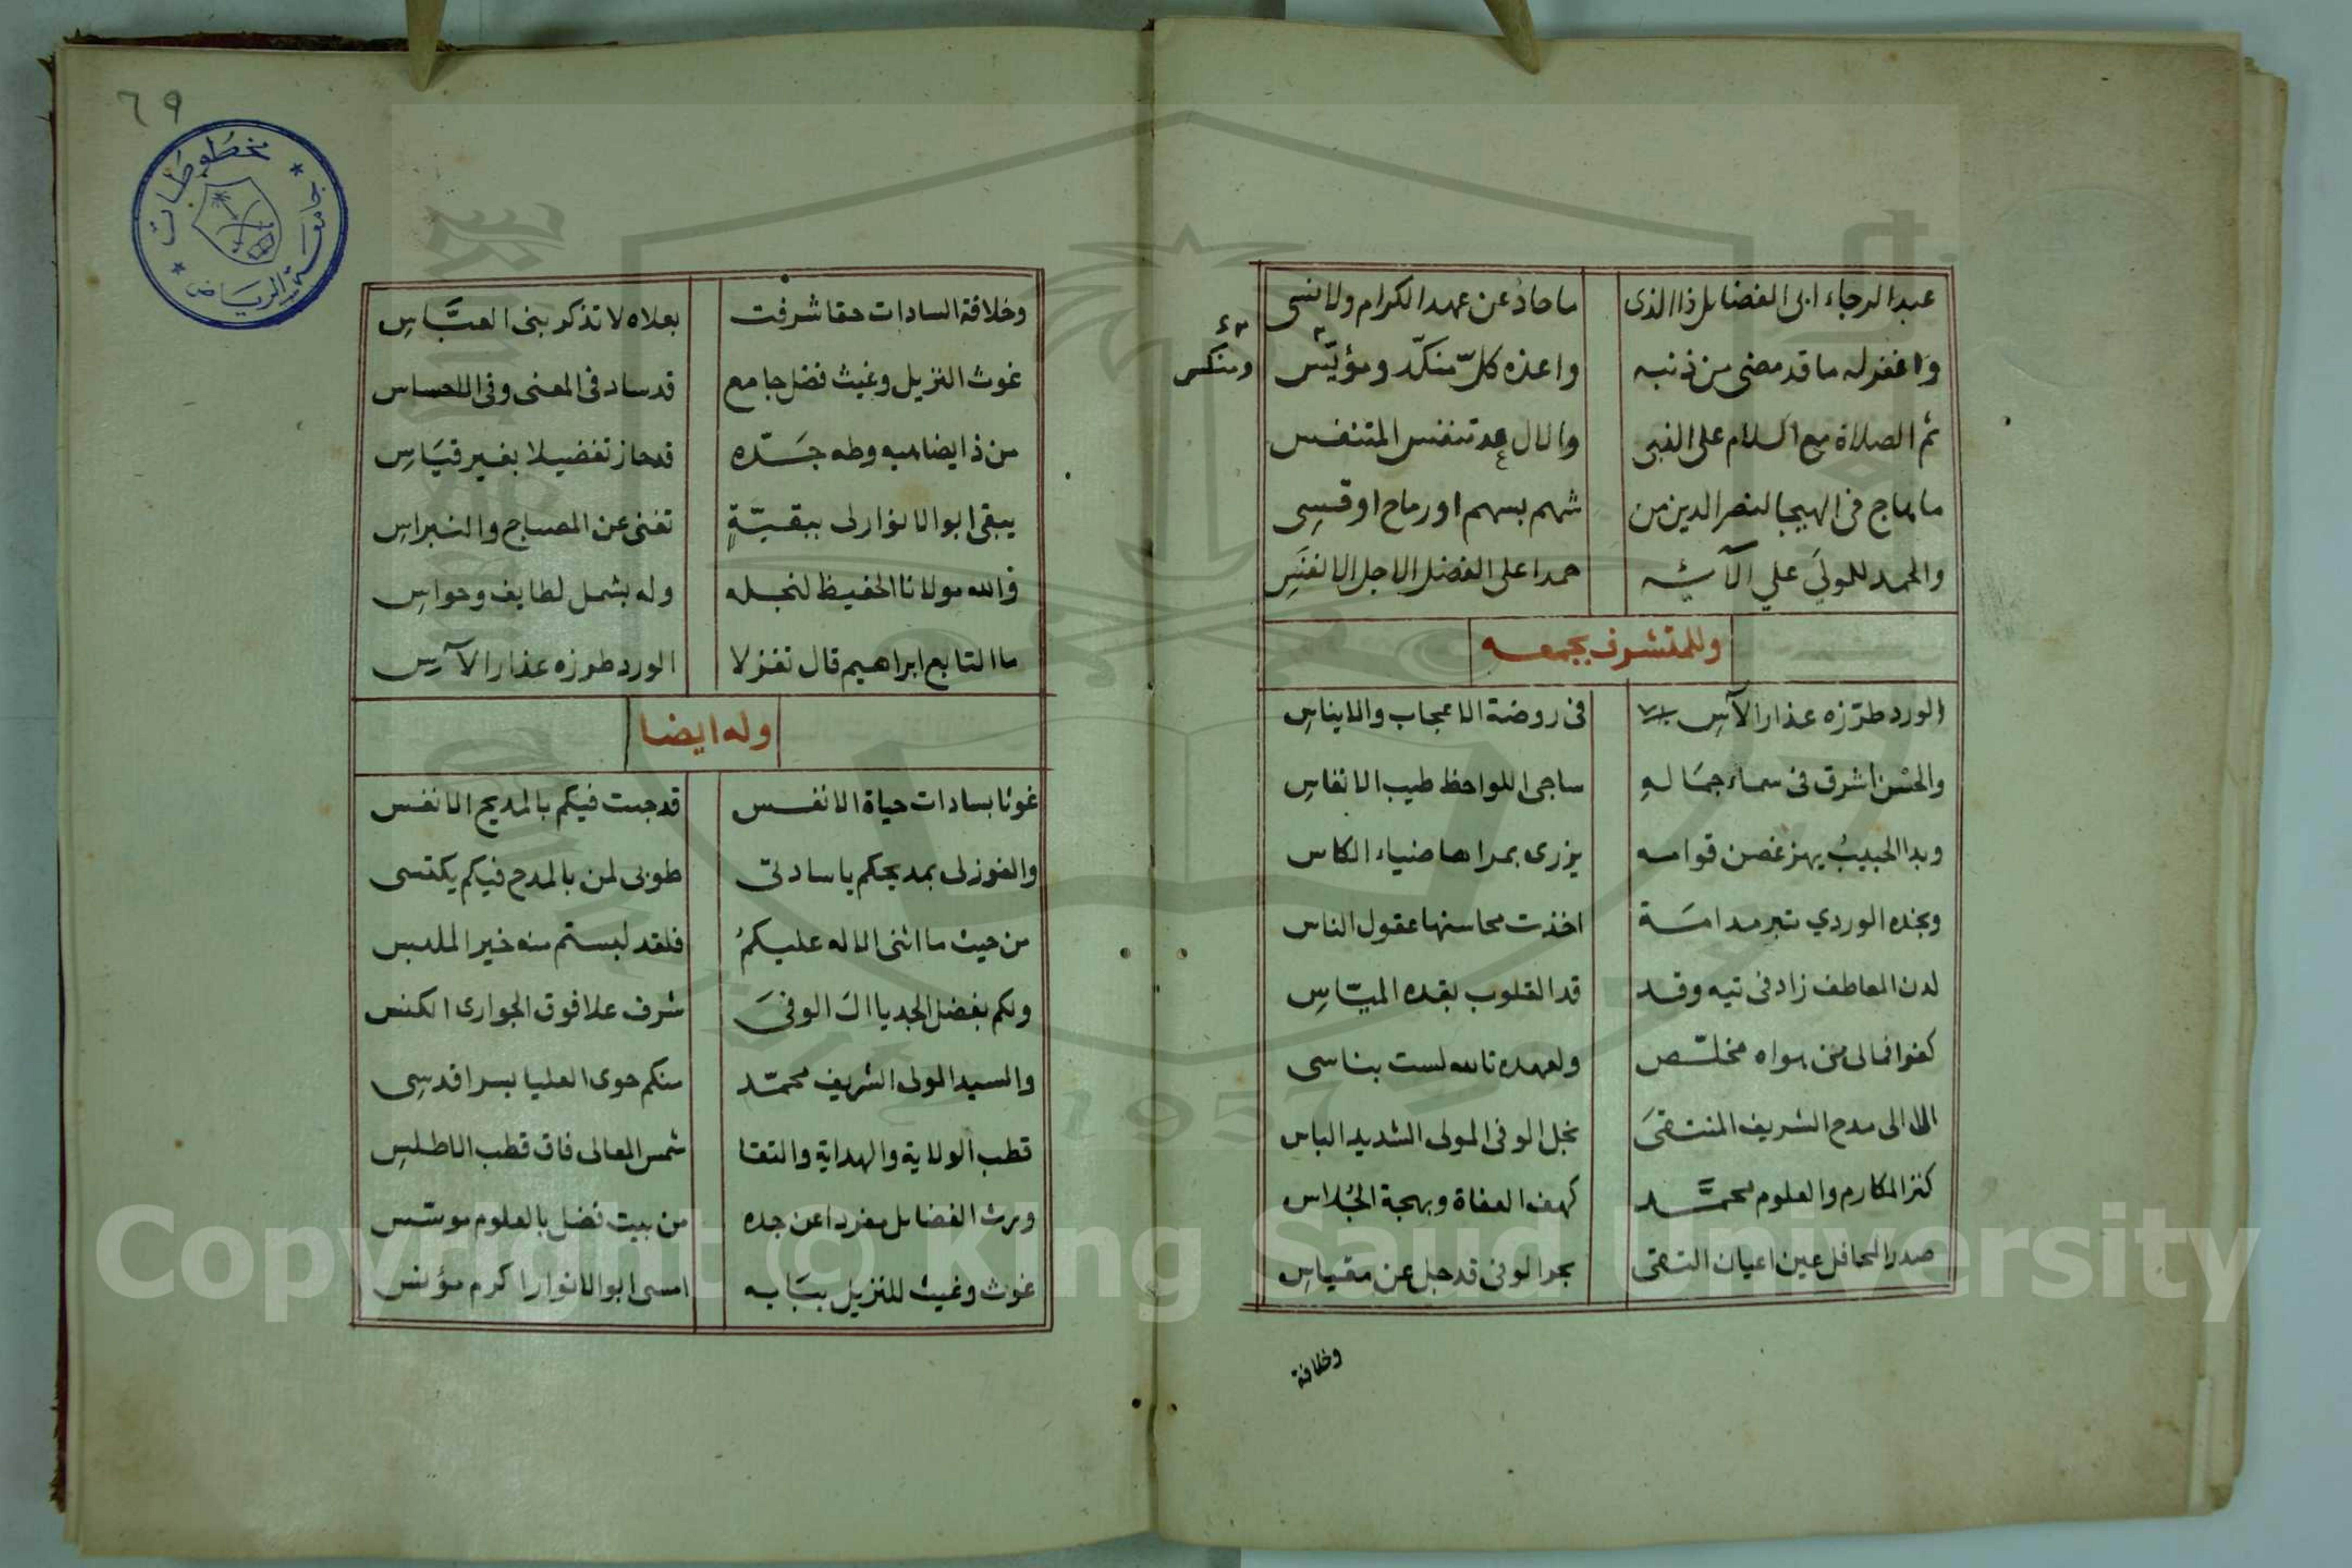 عبدا لرجاء ابى الفضايل ذا الذى ما حاد عن عهد الكرام ولا نسى
واغفر له ما قد مضى من ذنبه واعذه كلّ منكّد ومؤيّس
ومنكس
ثم الصلاة مع السلام على النبى والال عد تنفس المتنفس
ما ماج فى الهيجا لنصر الدين من شهم بسهم او رماح او قسِى
والحمد للمولىَ علي آلآئه حمدا على الفضل الاجل الانفَسِ
وللمتشرف بجمعه
الورد طرّزه عذار الآسِ فى روضة الاعجاب والايناسِ
والحسْن اشرق فى سماء جمَالهِ ساجى اللواحظ طيب الانفاسِ
وبدا الحبيبُ يهز غصن قوامه يزرى بمراها ضياء الكاس
وبخده الوردي تبر مدامَة اخذت محاسنها عقول الناس
لدن المعاطف زاد فى تيه وقد قد القلوب بقده الميّاسِ
كفوا فمالى من هواه مخلّص ولعهده تالله لست بناسى
الا الى مدح الشريف المنتقىَ نجل الوفى المولى الشديد الباس
كنز المكارم والعلوم محمَّد كهف العفاة وبهجة الجُلاس
صدر المحافل عين اعيان التقى بحر الوفى قد جل عن مقياسِ
وخلافة
٦٩
مخطوطات
جامعة الرياض
وخلافة السادات حقا شرفت بعلاه لا تذكر بنى العبَّاسِ
غوث النزيل وغيث فضل جامع قد ساد فى المعنى وفى الاحساس
من ذا يضاهيه وطه جَدّه قد حاز تفضيلا بغير قيَاسِ
يبقى ابو الانوار لى ببقيّةٍ تغنى عن المصباح والنبراسِ
فالله مولانا الحفيظ لنجله وله بشمل لطايف وحواسِ
ما التابع ابراهيم قال تغزلا الورد طرزه عذار الآسِ
وله ايضا
غوثا بسادات حياة الانفس قد جئت فيكم بالمديح الانفس
والفوز لى بمديحكم يا سادتى طوبى لمن بالمدح فيكم يكتسى
من حيث ما اثنى الاله عليكمُ فلقد لبستم منه خير الملبس
ولكم بفضل الجد يا ال الوفىَ شرف علا فوق الجوارى الكنس
والسيد المولى الشريف محمّد منكم حوى العليا بسر اقدسِى
قطب الولاية والهداية والتقا شمس المعالى فاق قطب الاطلسِ
ورث الفضايل مفردا عن جده من بيت فضل بالعلوم موسّس
غوث وغيث للنزيل ببَابه امسى ابو الانوار اكرم مؤنس
Copyright © King Saud University
1957